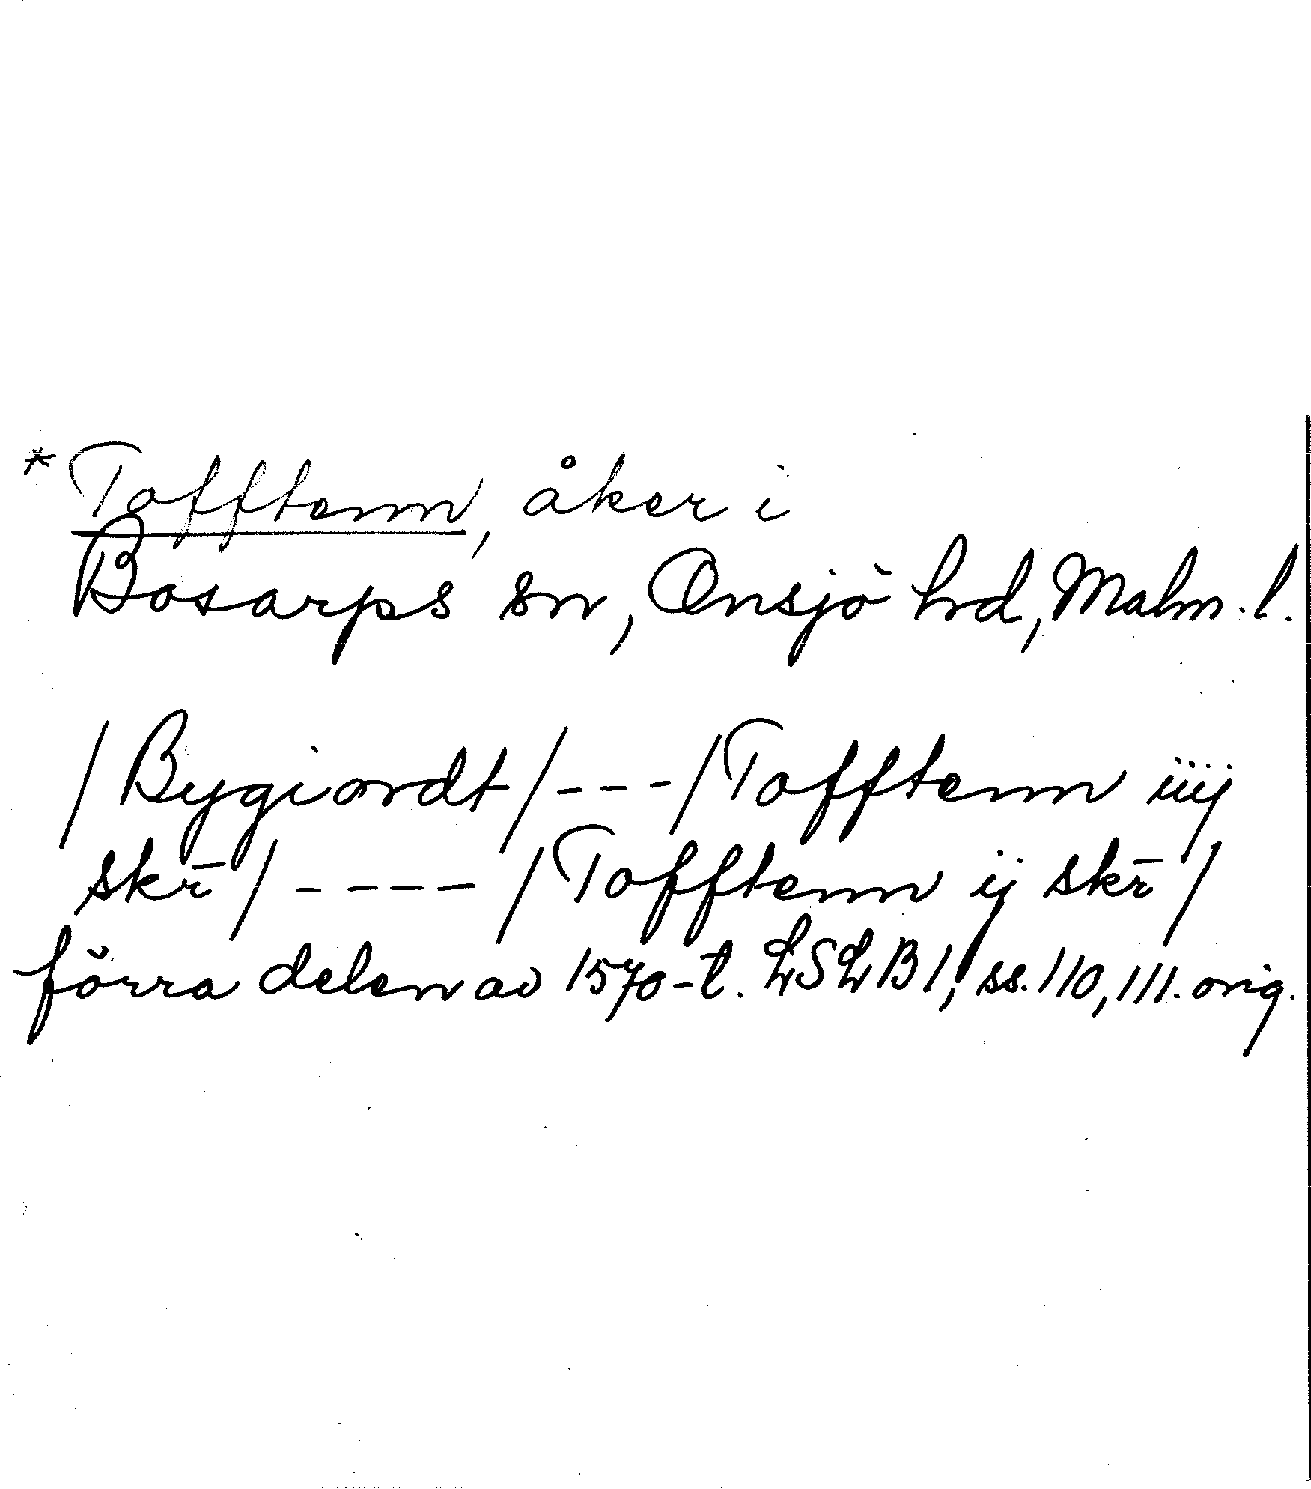 * Tofftenn, åker i
Bosarps sn, Onsjö hd, Malm. l.
/ Bygiordt / --- / Tofftenn iiij
skr̄ / ---- / Tofftenn ij skr̄ /
förra delen av 1570-t. LSLB 1, ss. 110, 111. orig.